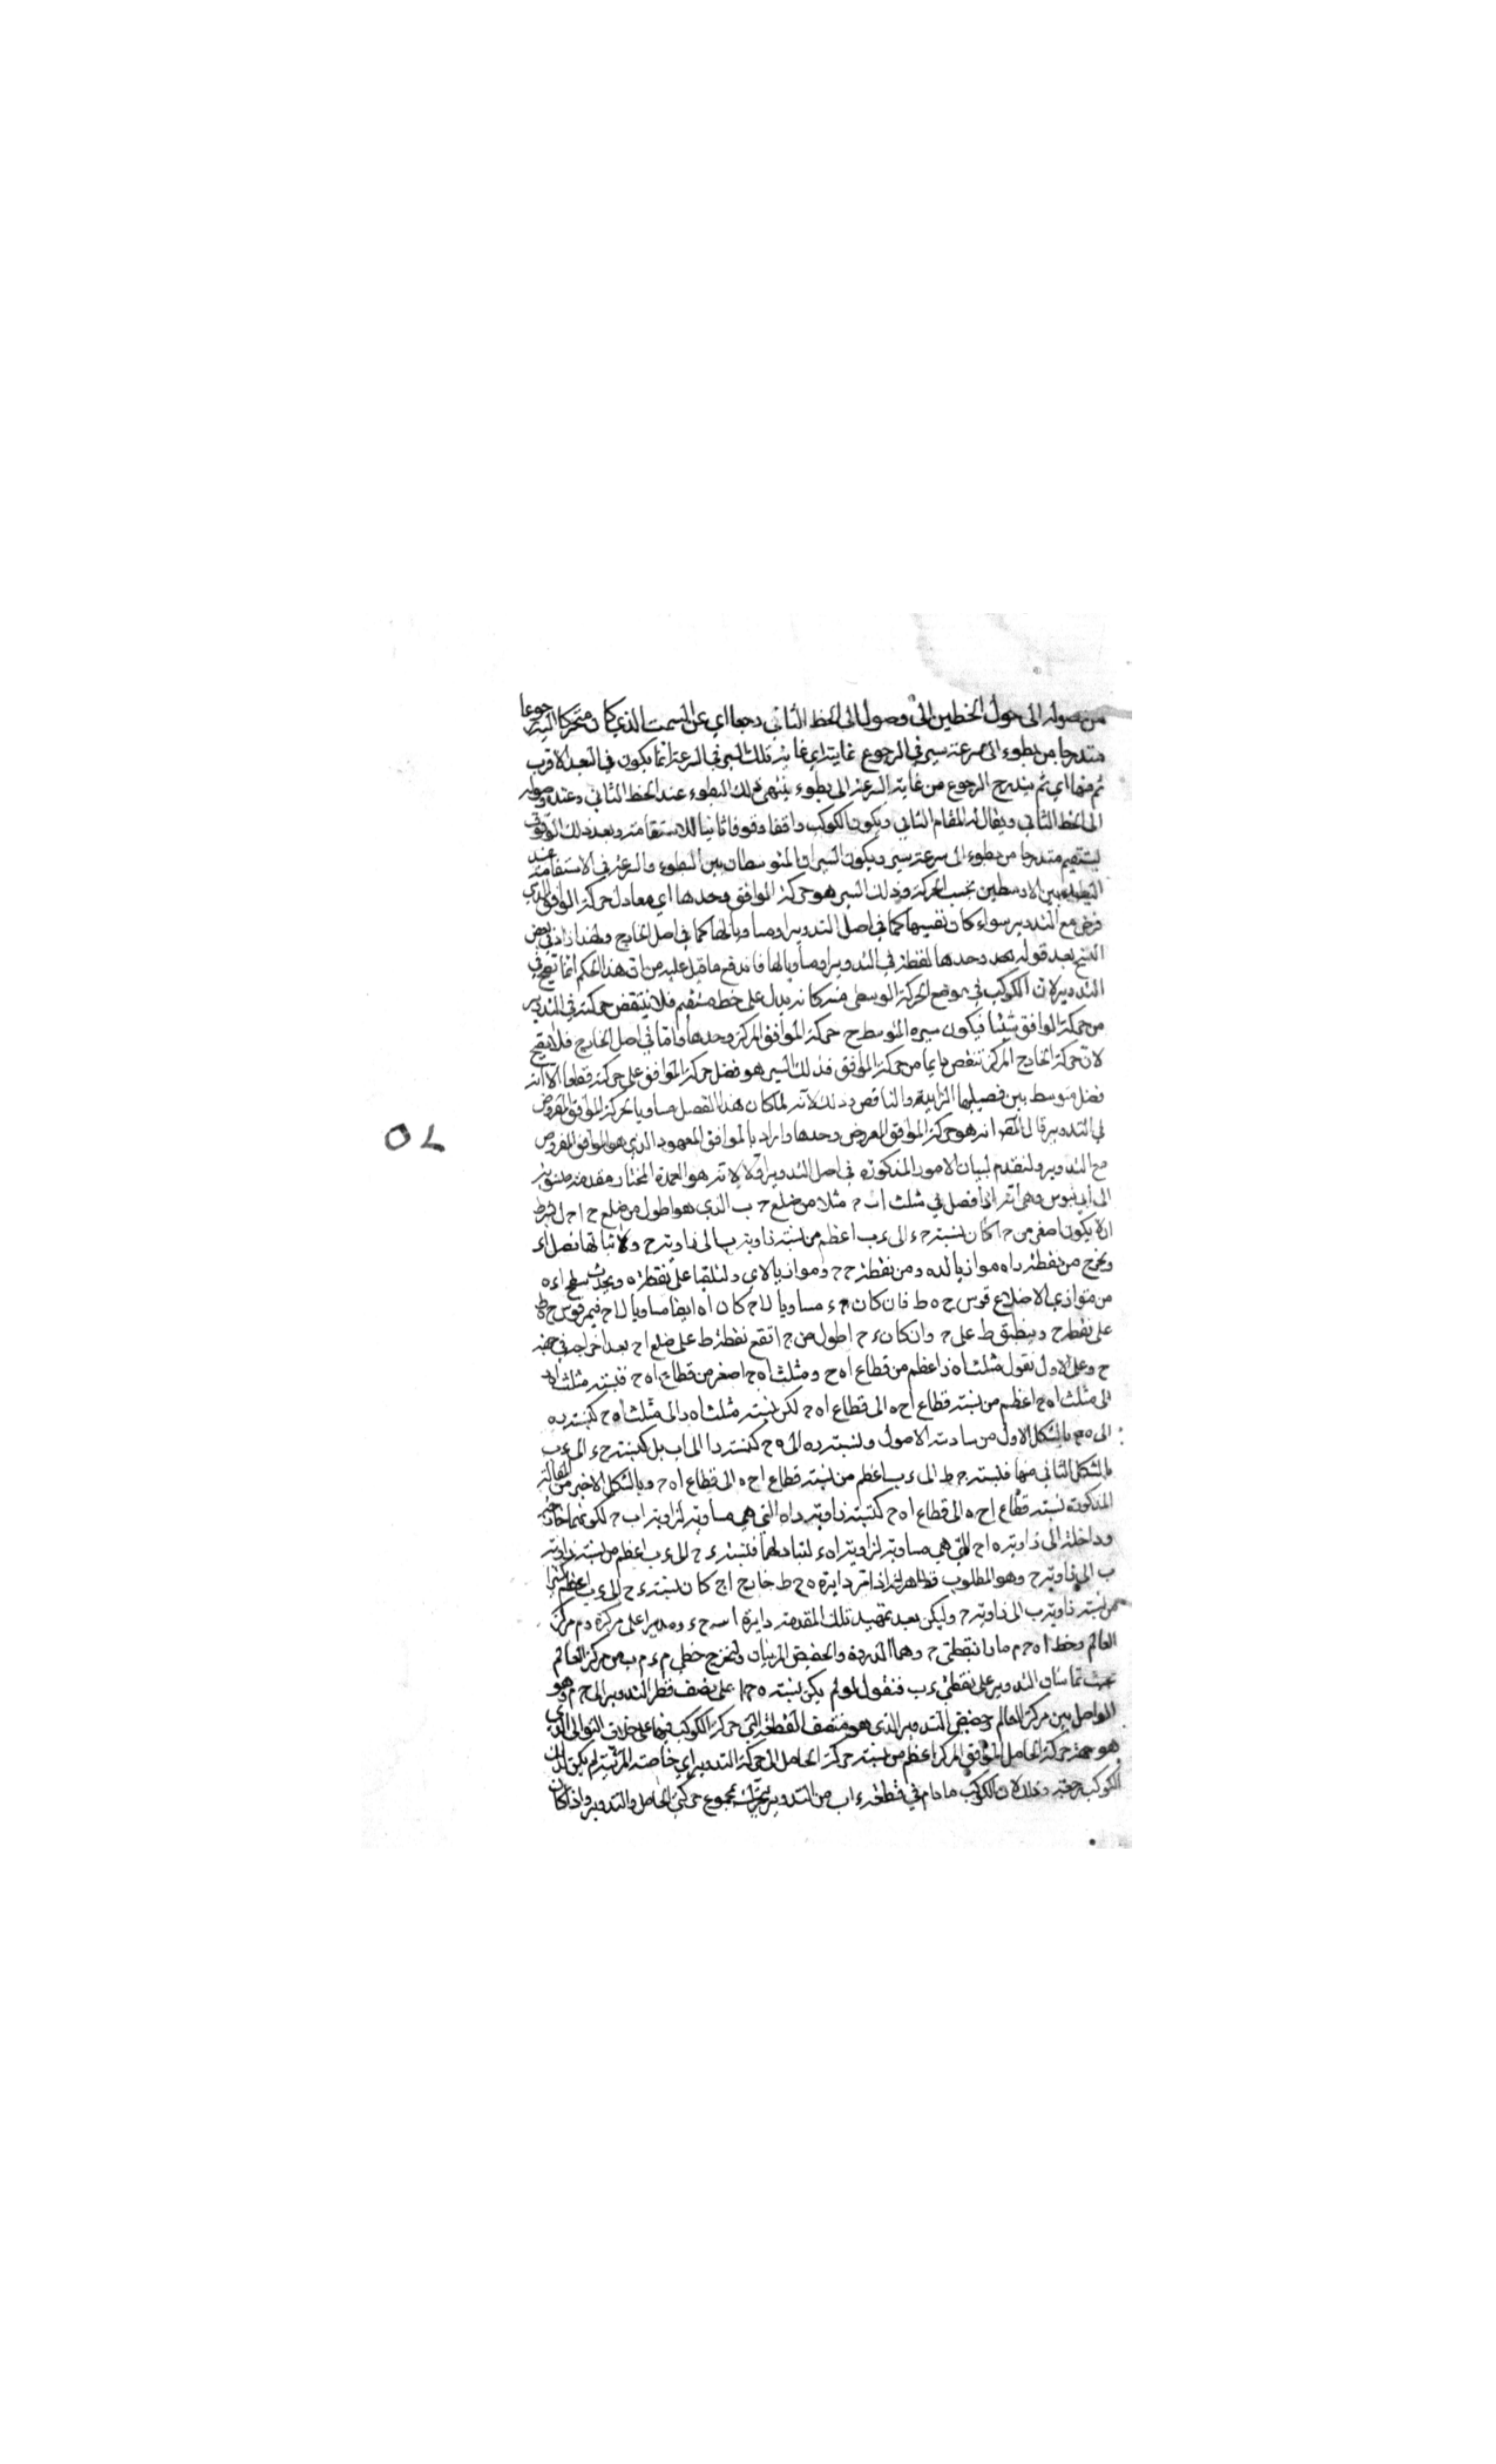 من وصوله الى حول الخطين الى وصوله الى الخط الثاني رجعا اي عن السمت الذي كان متحركا اليه رجوعا
متدرجا من بطوء الى سرعة سير في الرجوع غايته اي غاية تلك السير في السرعة انما يكون في البعد الاقرب
ثم منها اي ثم يتدرج الرجوع من غاية السرعة الى بطوء ينتهي ذلك البطوء عند الخط الثاني وعند وصوله
الى الخط الثاني ويقال له المقام الثاني ويكون الكوكب واقفا وقوفا ثانيا للاستقامة وبعد ذلك الوقوف
يستقيم متدرجا من بطوء الى سرعة سير ويكون السيران المتوسطان بين البطوء والسرعة في الاستقامة عند
البعدين الاوسطين بحسب الحركة وذلك السير هو حركة الموافق وحدها اي معادل حركة الموافق الذي
فرض مع التدوير سواء كان نفسها كما في اصل التدوير او مساويا لها كما في اصل الخارج ولهذا زاد في بعض
النسخ بعد قوله وحدها لفظة في التدوير او مساويا لها فاندفع ما قيل عليه من ان هذا الحكم انما تصح في
التدوير لان الكوكب في موضع الحركة الوسطى منه كانه يدل على خط مستقيم فلا ينتقض حركته في التدوير
من حركة الموافق شيئا فيكون سيره المتوسط ح حركة الموافق المركز وحدها واما في اصل الخارج فلا يصح
لان حركة الخارج المركز تنقص دايما من حركة الموافق فذلك السير هو فضل حركة الموافق على حركته قطعا الا انه
فضل متوسط بين فصيلها الزايد والناقص وذلك لانه لما كان هذا الفضل مساويا لحركة الموافق المفروض
في التدوير قال المص انه هو حركة الموافق المعروض وحدها واراد بالموافق المعهود الذي هو الموافق المفروض
مع التدوير ولنقدم لبيان الامور المذكورة في اصل التدوير اولا لانه هو العمدة المختار مقدمة منسوبة
الى ابلنيوس وهي انه اذا فصل في مثلث اب ح مثلا من ضلع ح ب الذي هو اطول من ضلع ح ا ح ل بشرط
ان لا يكون اصغر من ح ا كان نسبة ح ء الى ء ب اعظم من نسبة زاوية ب الى زاوية ح ولاثباتها نصل اء
ونخرج من نقطة د اه موازيا لده ومن نقطة ح ح وموازيا لاي وليلتقيا على نقطة ه ويحدث سطح اءه
من متوازي الاضلاع قوس ح ه ط فان كان ح ء مساويا لا ح كان اه ايضا مساويا لاح فيمر قوس ح ط
على نقطة ح وينطبق ط على ح وان كان ء ح اطول من ح ا تقع نقطة ط على ضلع ا ح بعد اخراجه في جهة
ح وعلى الاول نقول مثلث اه ز اعظم من قطاع اه ح ومثلث اه ح اصغر من قطاع اه ح فنسبة مثلث اه
الى مثلث اه ح اعظم من نسبة قطاع اح ه الى قطاع اه ح لكن نسبة مثلث اه د الى مثلث اه ح كنسبة ده
الى ه ح بالشكل الاول من سادسة الاصول ولنسبة ده الى ه ح كنسبة دا الى اب بل كنسبة ح ء الى ء ب
بالشكل الثاني منها فنسبة ح ط الى ء ب اعظم من نسبة قطاع اح ه الى قطاع اه ح وبالشكل الاخير من المقالة
المذكورة نسبة قطاع اح ه الى قطاع اه ح كنسبة زاوية داه التي هي مساوية لزاوية اب ح لكونهما خارجة
وداخلة الى زاوية ه اح التي هي مساوية لزاوية اه ء لتبادلهما فنسبة ء ح الى ء ب اعظم من نسبة زاوية
ب الى زاوية ح وهو المطلوب فظاهر انه اذا مر دايرة ه ح ط خارج اح كان نسبة ء ح الى ء ب اعظم كثيرا
من نسبة زاوية ب الى زاوية ح وليكن بعد تمهيد تلك المقدمة دايرة ا س ح ء وه تدويرا على مركزه و م مركز
العالم وخط ا ه ح م مارا بنقطتي ح وهما الذروة والحضيض المرئيان ولنخرج خطي م ء م ب من مركز العالم
بحيث تماسان التدوير على نقطتي ء ب فنقول لو لم يكن نسبة ه ح ا على نصف قطر التدوير الى ح م وهو
الواصل بين مركز العالم وحضيض التدوير الذي هو منتصف القطعة التي حركة الكوكب فيها على خلاف التوالي الذي
هو جهة حركة الحامل الموافق المركز اعظم من نسبة حركة الحامل الى حركة التدوير اي خاصته المرئية لم يكن لذلك
الكوكب رجعة وذلك لان الكوكب ما دام في قطعة ء اب من التدوير يتحرك بمجموع حركتي الحامل والتدوير واذا كان
٧٥